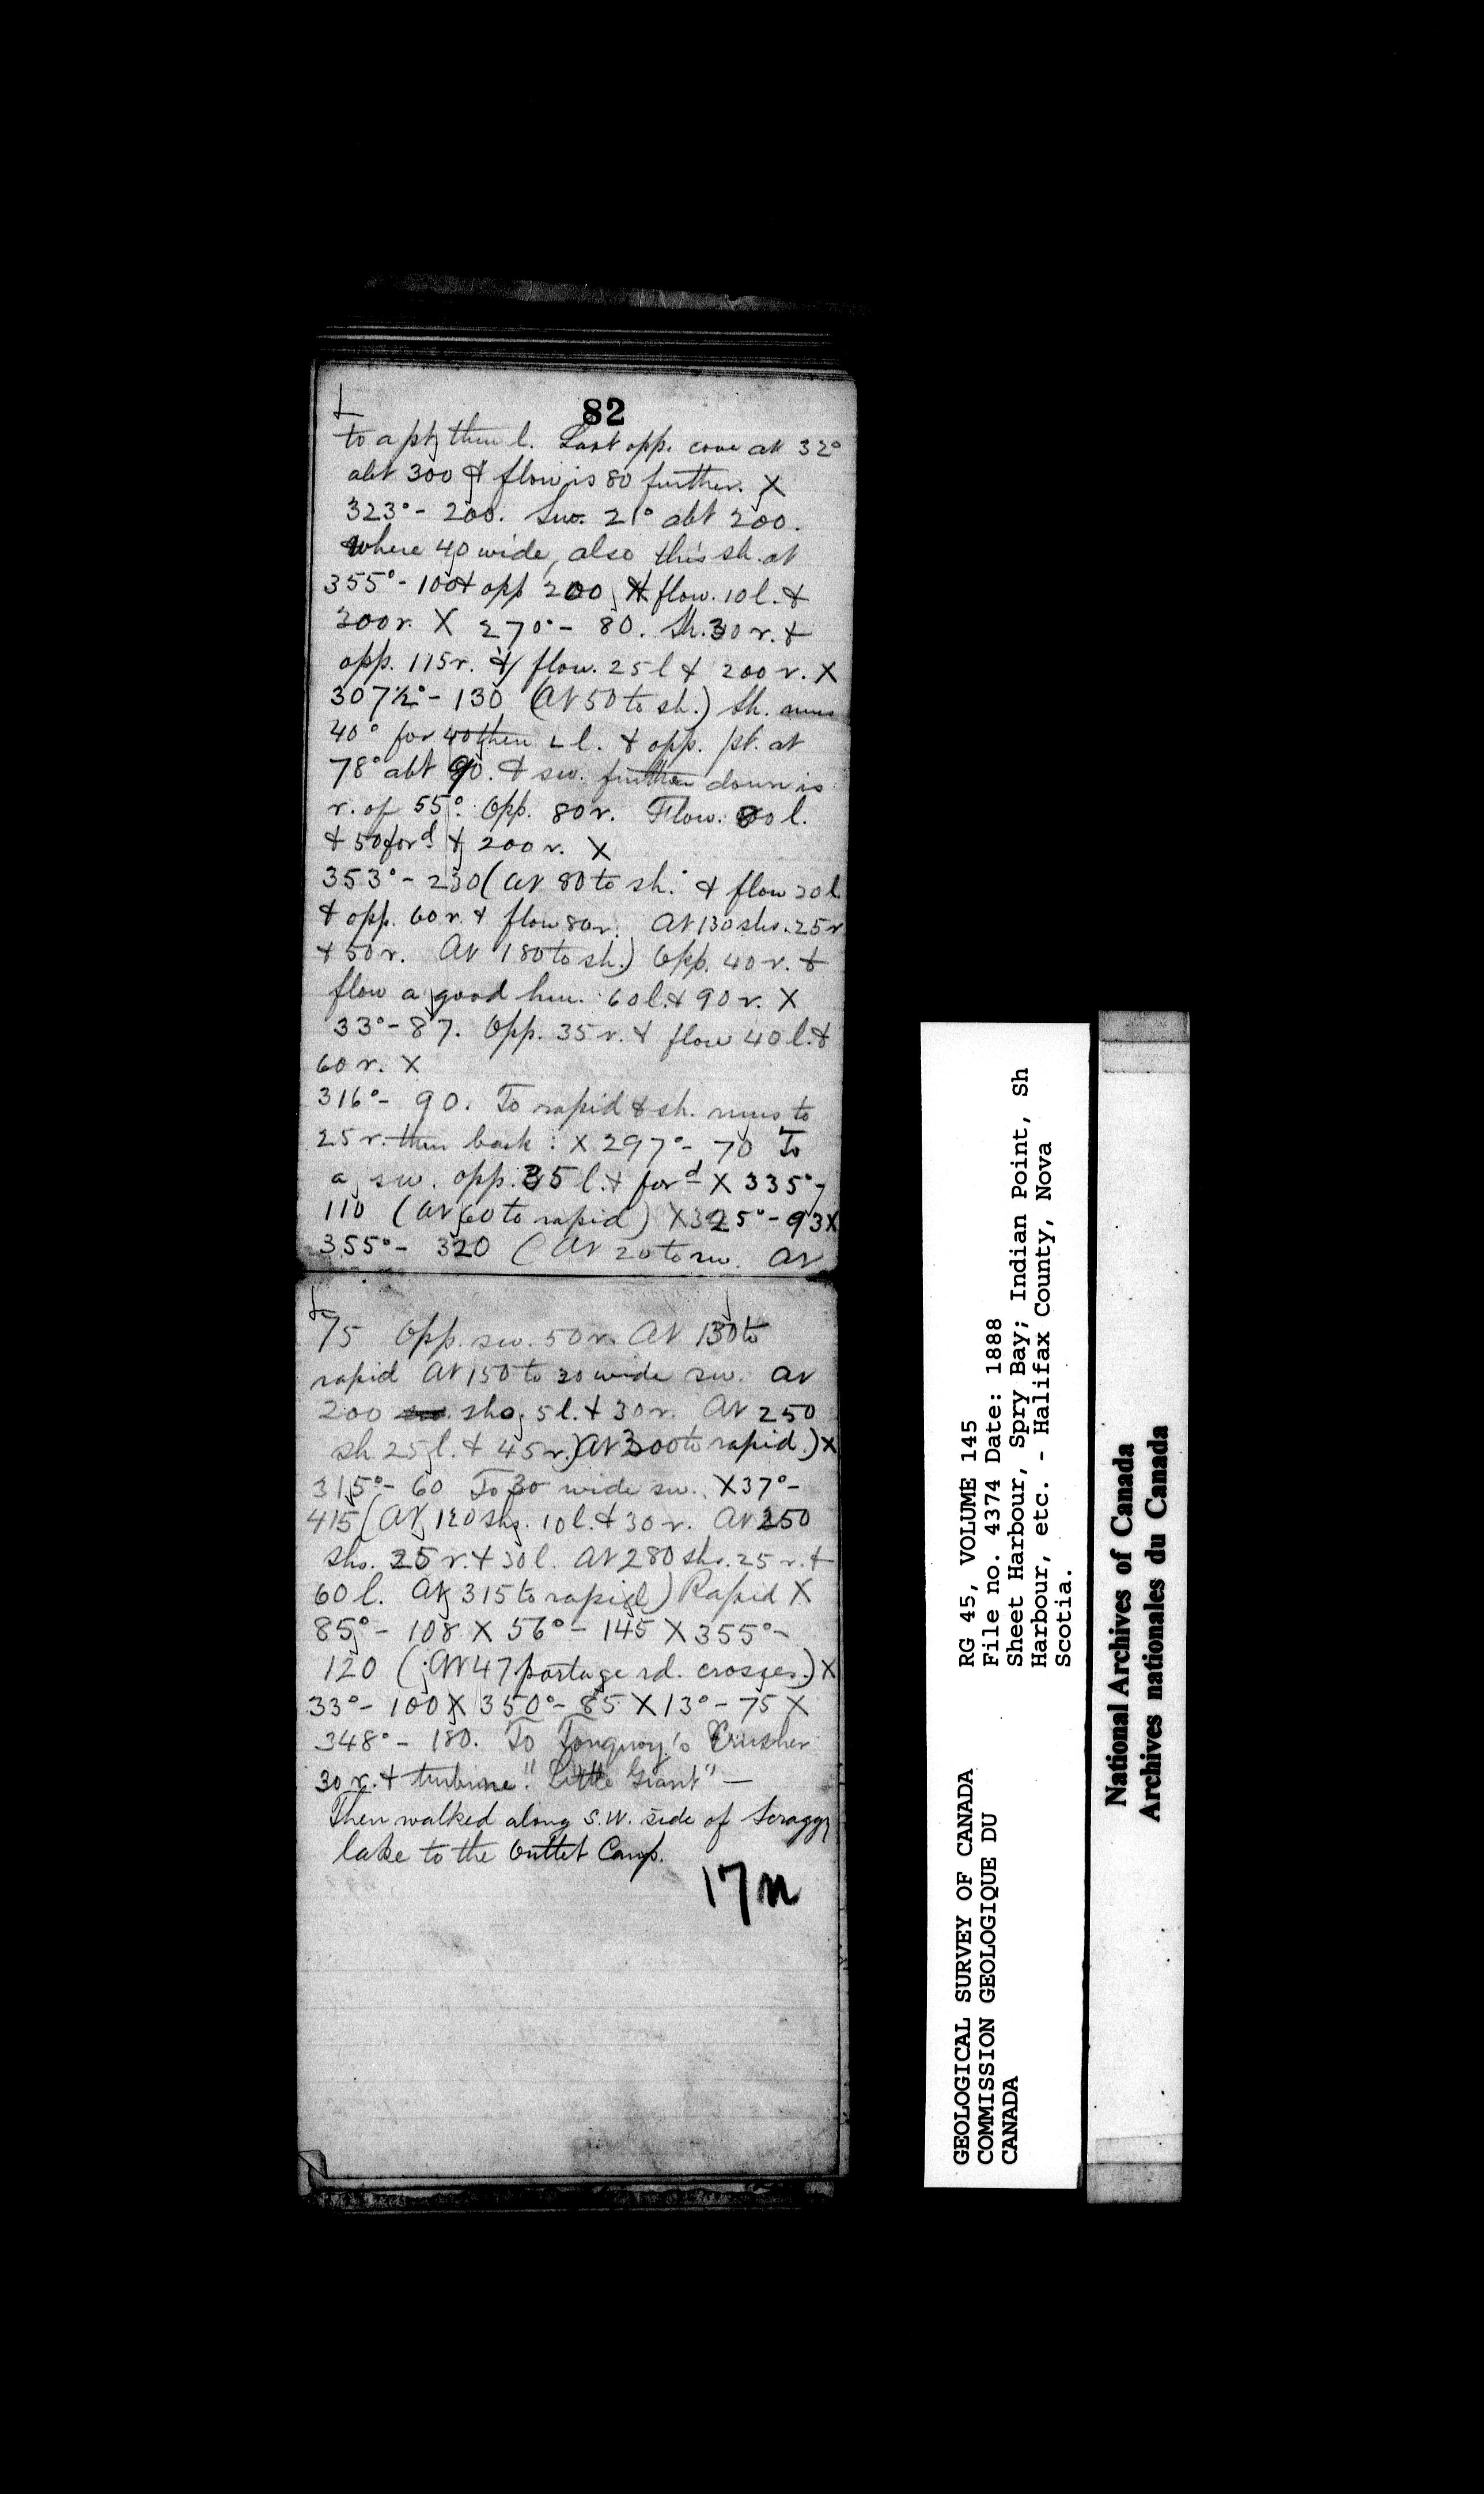 82
to a pt, then l. Last opp. cove at 32°
abt 300 & flow is 80 further. X
323°- 200. Sw. 21° abt 200.
Where 40 wide, also this sh. at
355°- 100 & opp 200 & flow. 10 l. &
300 r. X 270°- 80. Sh. 30 r. &
opp. 115 r. & flow. 25 l & 200 r. X
307½°- 130 (At 50 to sh.) Sh. runs
40° for 40 then L l. & opp. pt. at
78° abt 90. & sw. further down is
r. of 55°. Opp. 80 r. Flow. 80 l.
& 50 for d & 200 r. X
353°- 230 (At 80 to sh. & flow 20 l.
& opp. 60 r. & flow 80 r. At 130 shs. 25 r
& 50 r. At 180 to sh.) Opp. 40 r. &
flow a good hm. 60 l. & 90 r. X
33°- 87. Opp. 35 r. & flow 40 l. &
60 r. X
316°- 90. To rapid & sh. runs to
25 r. then back : X 297°- 70 To
a sw. opp. 35 l. & for d X 335°-
110 (At 60 to rapid) X 325°- 93 X
355°- 320 (At 20 to sw. At
75 Opp. sw. 50 r. At 130 to
rapid At 150 to 30 wide sw. At
200 shs. 5 l. & 30 r. At 250
sh 25 l. & 45 r.) At 300 to rapid.) X
315°- 60 To 30 wide sw. X 37°-
415 (At 120 shs. 10 l. & 30 r. At 250
shs. 25 r. & 30 l. At 280 shs. 25 r. &
60 l. At 315 to rapid) Rapid X
85°- 108 X 56°- 145 X 355°-
120 (At 47 portage rd. crosses.) X
33°- 100 X 350°- 85 X 13°- 75 X
348°- 180. To Tonquoy's Crusher
30 r. & turbine "Little Giant" —
Then walked along S.W. side of Scraggy
lake to the Outlet Camp.
17 m
GEOLOGICAL SURVEY OF CANADA
COMMISSION GEOLOGIQUE DU
CANADA
RG 45, VOLUME 145
File no. 4374 Date: 1888
Sheet Harbour, Spry Bay; Indian Point, Sh
Harbour, etc. - Halifax County, Nova
Scotia.
National Archives of Canada
Archives nationales du Canada